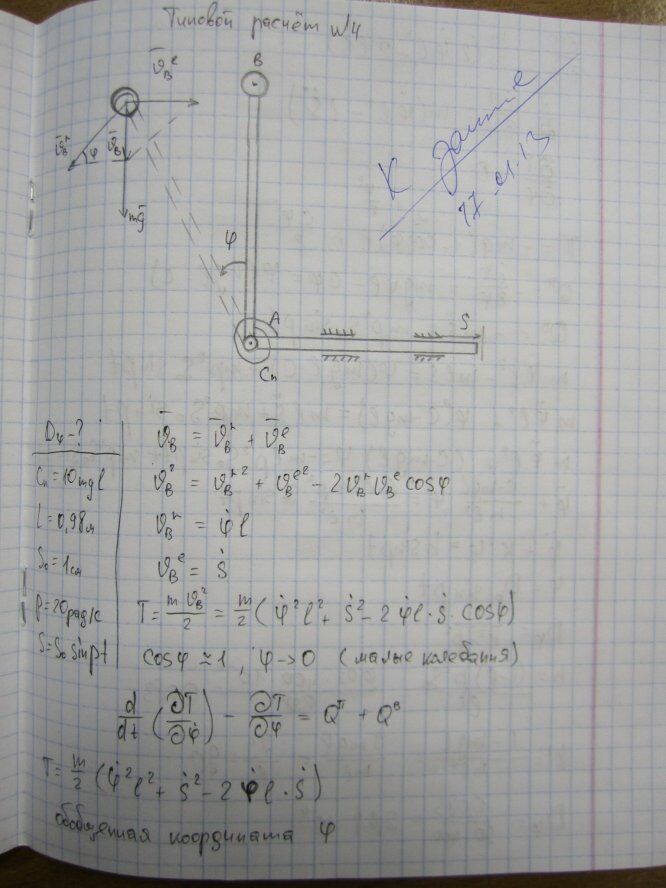 Типовой расчёт №4
К защите
17.01.13
B
v̄_B^e
v̄_B^r
φ
v̄_B
mḡ
φ
A
S
Cп
Dφ-?
Cп = 10mgl
l = 0,98м
S₀ = 1см
p = 20рад/с
S = S₀ sin pt
v̄_B = v̄_B^r + v̄_B^e
v_B² = v_B^r² + v_B^e² - 2v_B^r v_B^e cosφ
v_B^r = φ̇ l
v_B^e = ṡ
T = m v_B²/2 = m/2 (φ̇² l² + ṡ² - 2 φ̇ l · ṡ · cosφ)
cosφ ≈ 1, φ → 0 (малые колебания)
d/dt (∂T/∂φ̇) - ∂T/∂φ = Q^п + Q^в
T = m/2 (φ̇² l² + ṡ² - 2 φ̇ l · ṡ)
обобщенная координата φ